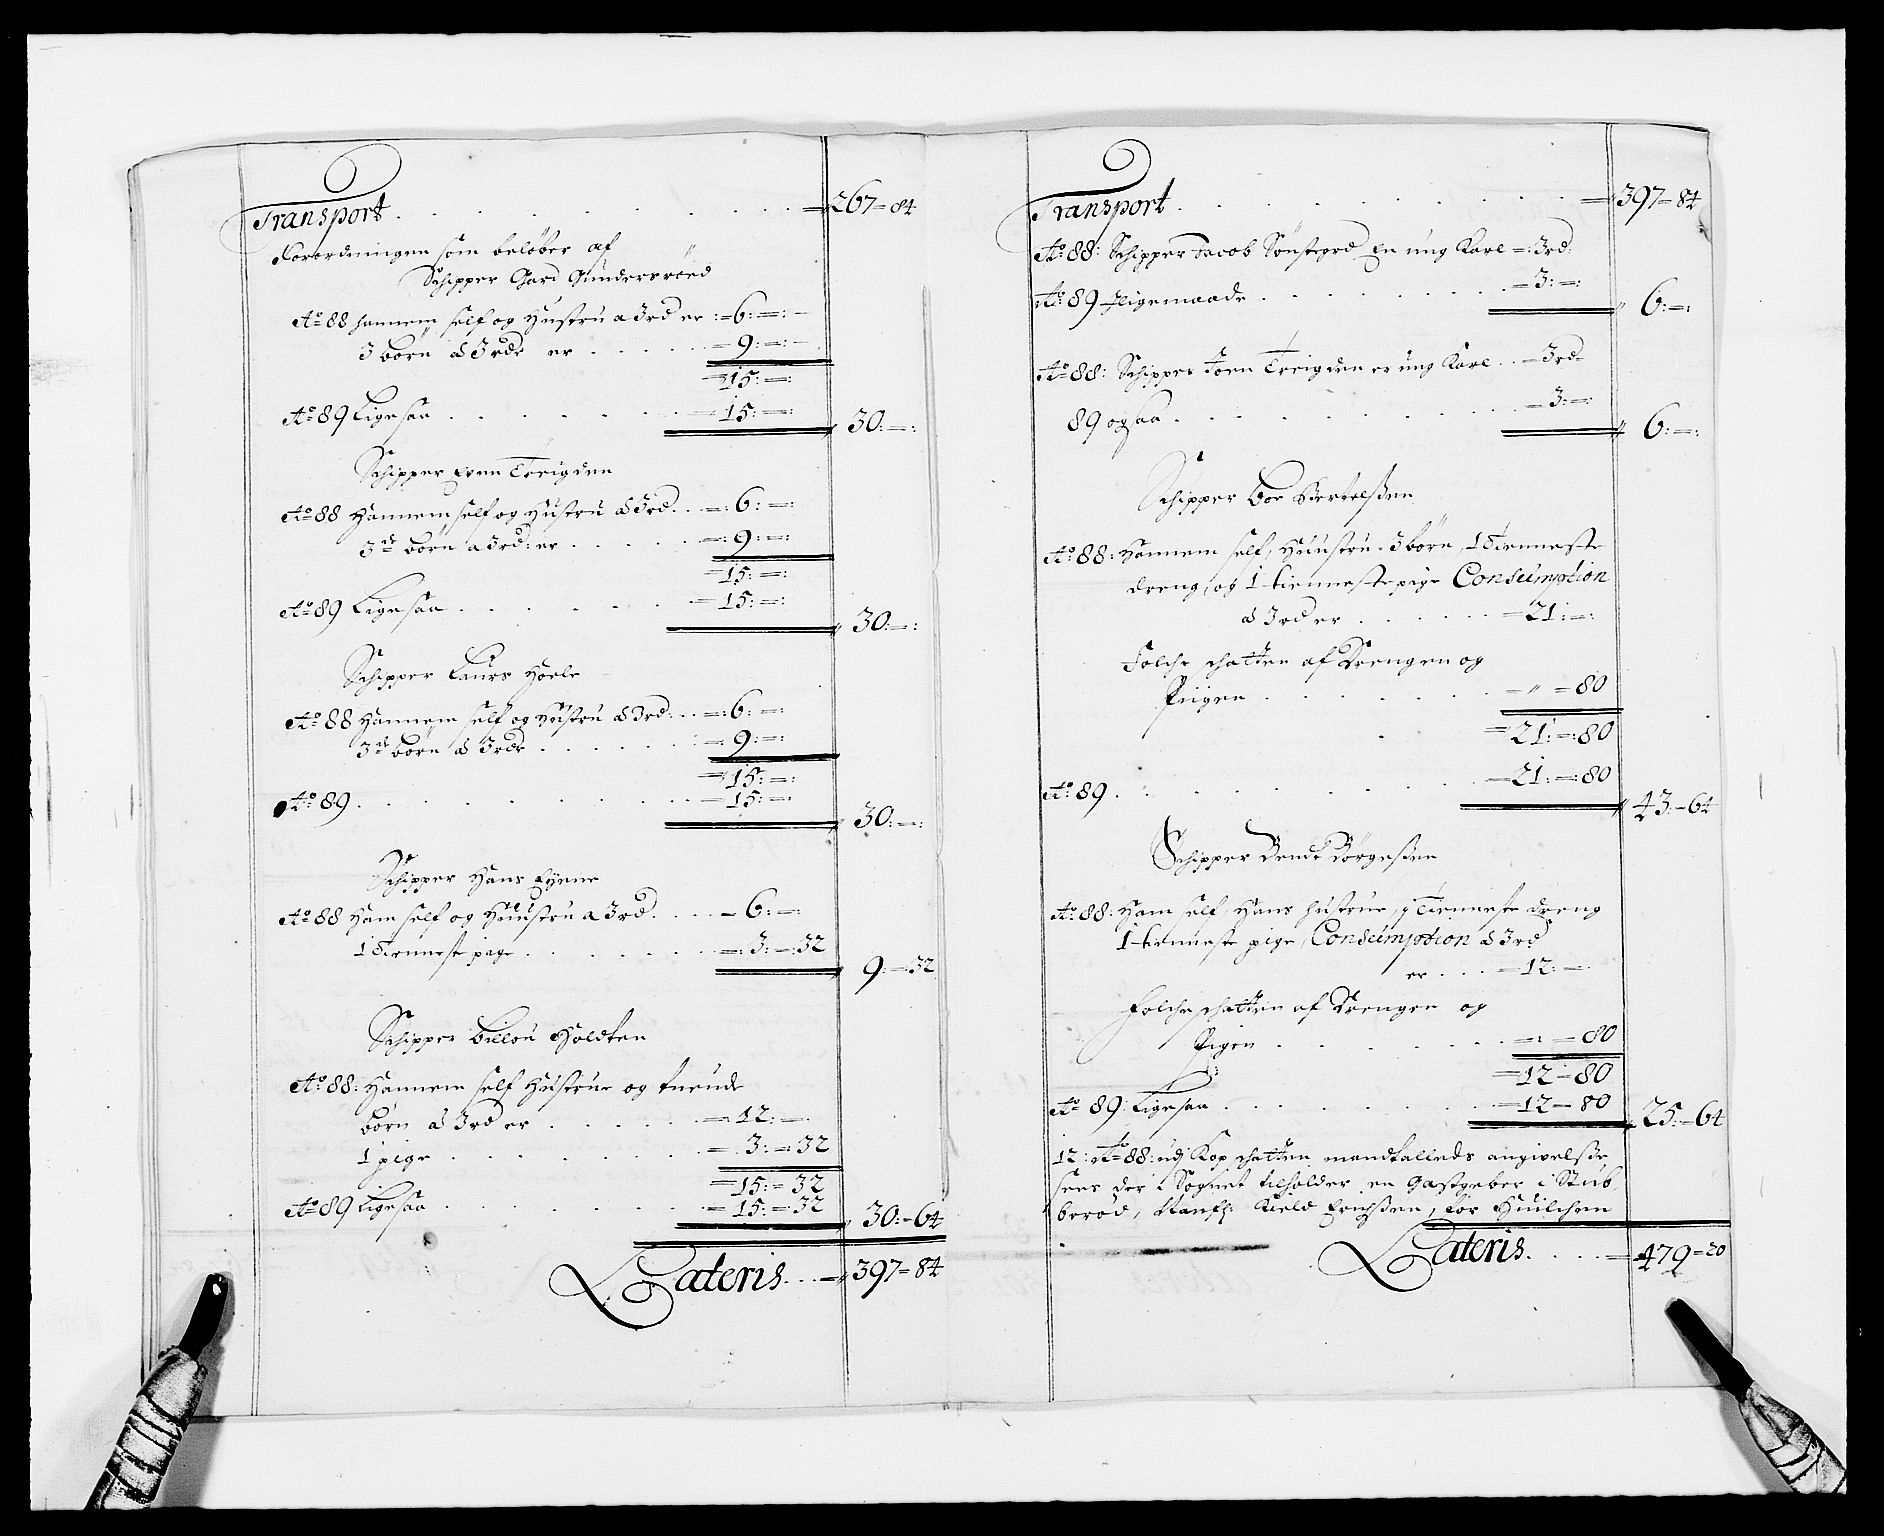 Transport . . . . . . . . . = 267 = 84
Forordningen som beløber af
Schipper Gard Gundersrøed
Ao 88 hannem self og Hustru a 3 rd er := 6: =:
3 børn â 3 rdr er . . . . . = 9: =:
= 15: =:
Ao 89 Ligesaa . . . . . . = 15: =: 30: =:
Schipper Even Treigden
Ao 88 Hannem self og Hustru â 3 rd . . =: 6: =:
3de børn a 3 rd: er . . . . . =: 9: =:
= 15: =:
Ao 89 Ligesaa . . . . . . = 15: =: 30: =:
Schipper Laurs Hoele
Ao 88 Hannem self og Hustru â 3 rd: . . =: 6: =:
3de børn â 3 rdr . . . . . . =: 9: =:
= 15: =:
Ao 89 . . . . . . . . = 15: =: 30: =:
Schipper Hans Eÿene
Ao 88 Ham self og Huustru a 3 rd. . . . = 6: =:
1 Tienneste pige . . . . . . =: 3: =: 32 9: = 32
Schipper Holdten
Ao 88: Hannem self Hustrue og tuende
børn â 3 rd er . . . . . =: 12: =:
1 pige . . . . . . . . =: 3: =: 32
= 15: = 32
Ao 89 Ligesaa . . . . . . . = 15: =: 32 30: = 64
Lateris . . . = 397 = 84
Transport . . . . . . . . . = 397 = 84
Ao 88: Schipper Jacob Sønstegrd En ung Karl =: 3 rd:
Ao 89 Ligemaade . . . . . . = 3: =: 6: =:
Ao 88: Schipper Joen Treigden er ung Karl . . = 3 rd=
89 ogsaa . . . . . . . . = 3: =: 6: =:
Schipper Boe Bertelssen
Ao 88: Hannem self, Huustru, 3 børn, 1 Tienneste
dreng, og 1 tienneste pige Consumption
â 3 rd er . . . . . = 21: =:
Folche schatten af Drengen og
Piigen . . . . . . . = " = 80
= 21: =: 80
Ao 89 . . . . . . . . . = 21: =: 80 43: = 64
Schipper Bendt Børgessen
Ao 88: Ham self, Hans hustrue, 1 Tienneste dreng
1 tienneste pige, Consumption â 3 rd
er . . . . = 12: =:
Folche schatten af Drengen og
Pigen . . . . . . . =: = 80
= 12 = 80
Ao 89: Ligesaa . . . . . . . . = 12 = 80 25: = 64
12: Ao 88: udj Kop schatten mandtalleds angivelsse
sees der i Sognet tilholder en Gastgeber i Stub
berød, Nanfl: Kield Erichssen, Tør Huilchen
Lateris . . . . = 479 = 20